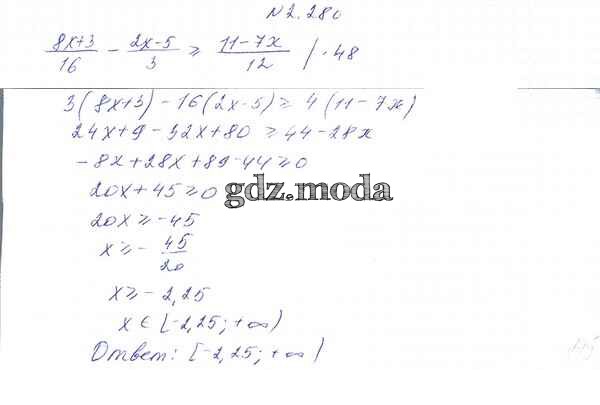 N2.280
(8x+3)/16 - (2x-5)/3 ≥ (11-7x)/12 /·48
3(8x+3)-16(2x-5)≥4(11-7x)
24x+9-32x+80≥44-28x
-8x+28x+89-44≥0
20x+45≥0
gdz.moda
20x≥-45
x≥-45/20
x≥-2,25
x∈[-2,25;+∞)
Ответ: [-2,25;+∞)